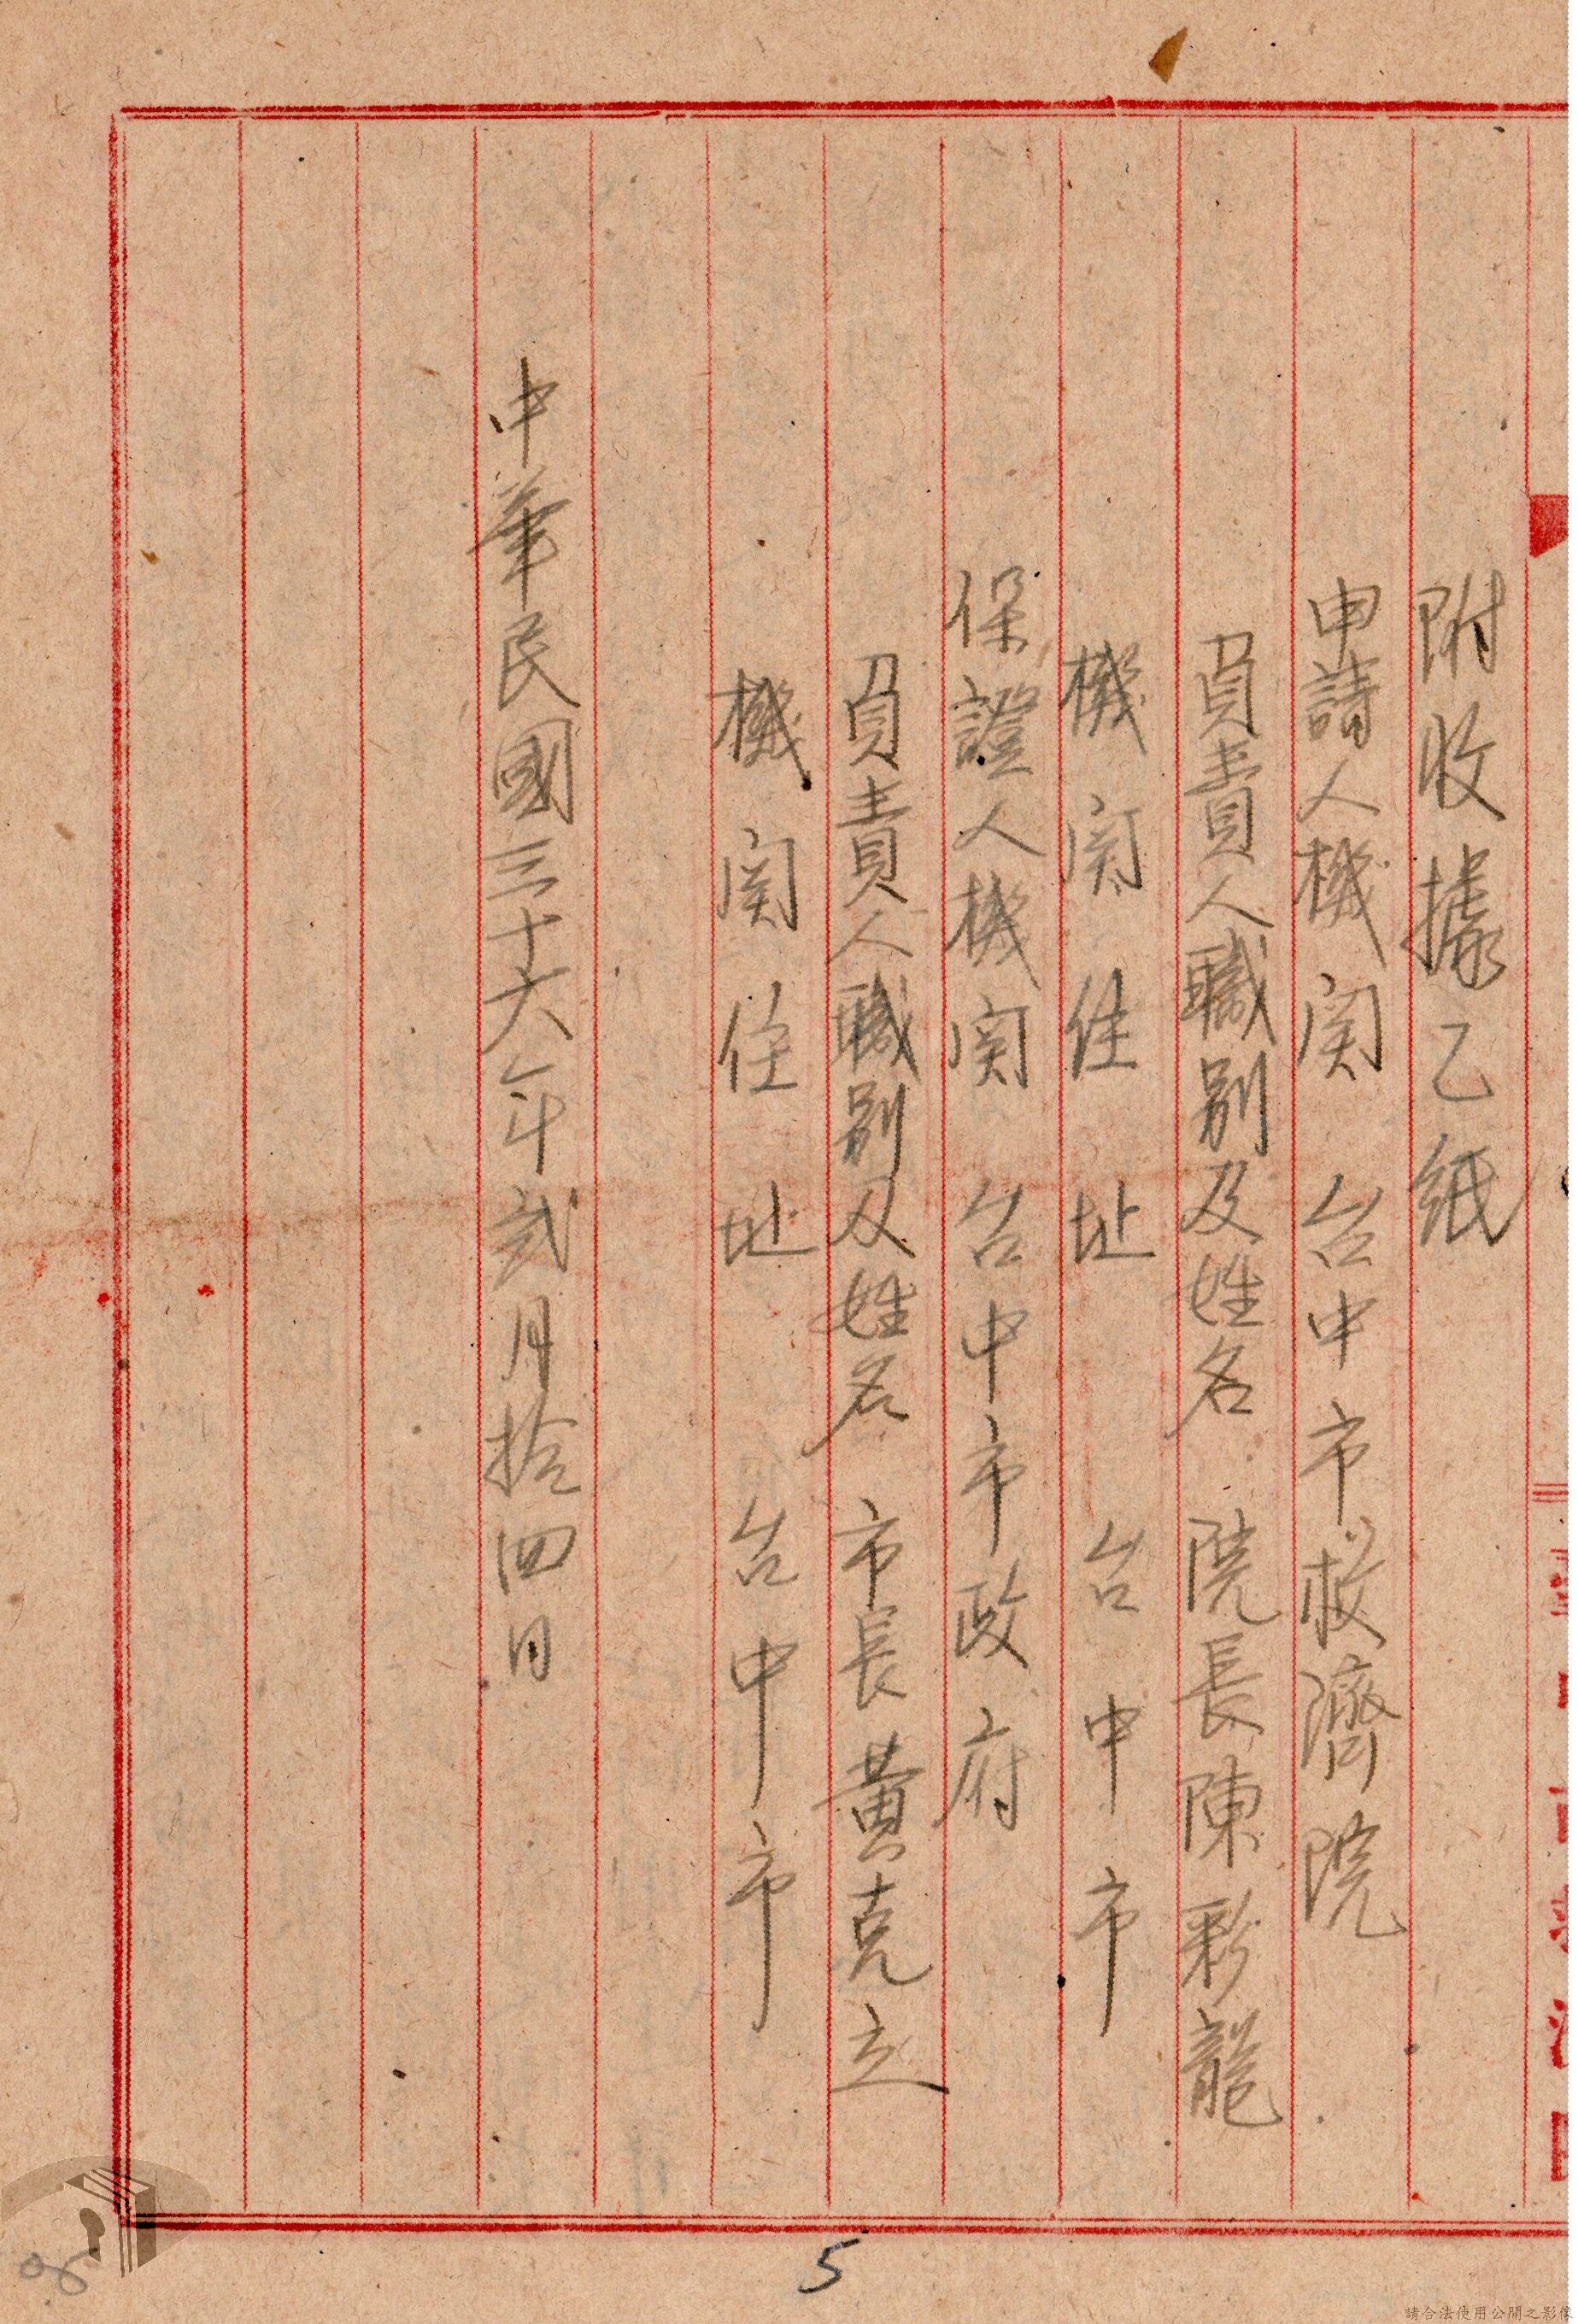 附收據乙紙
申請人機関　台中市救濟院
負責人職別及姓名　院長陳彩龍
機関住址　台中市
保證人機関　台中市政府
負責人職別及姓名　市長黃克立
機関住址　台中市
中華民國三十六年弐月拾四日
5
請合法使用公開之影像